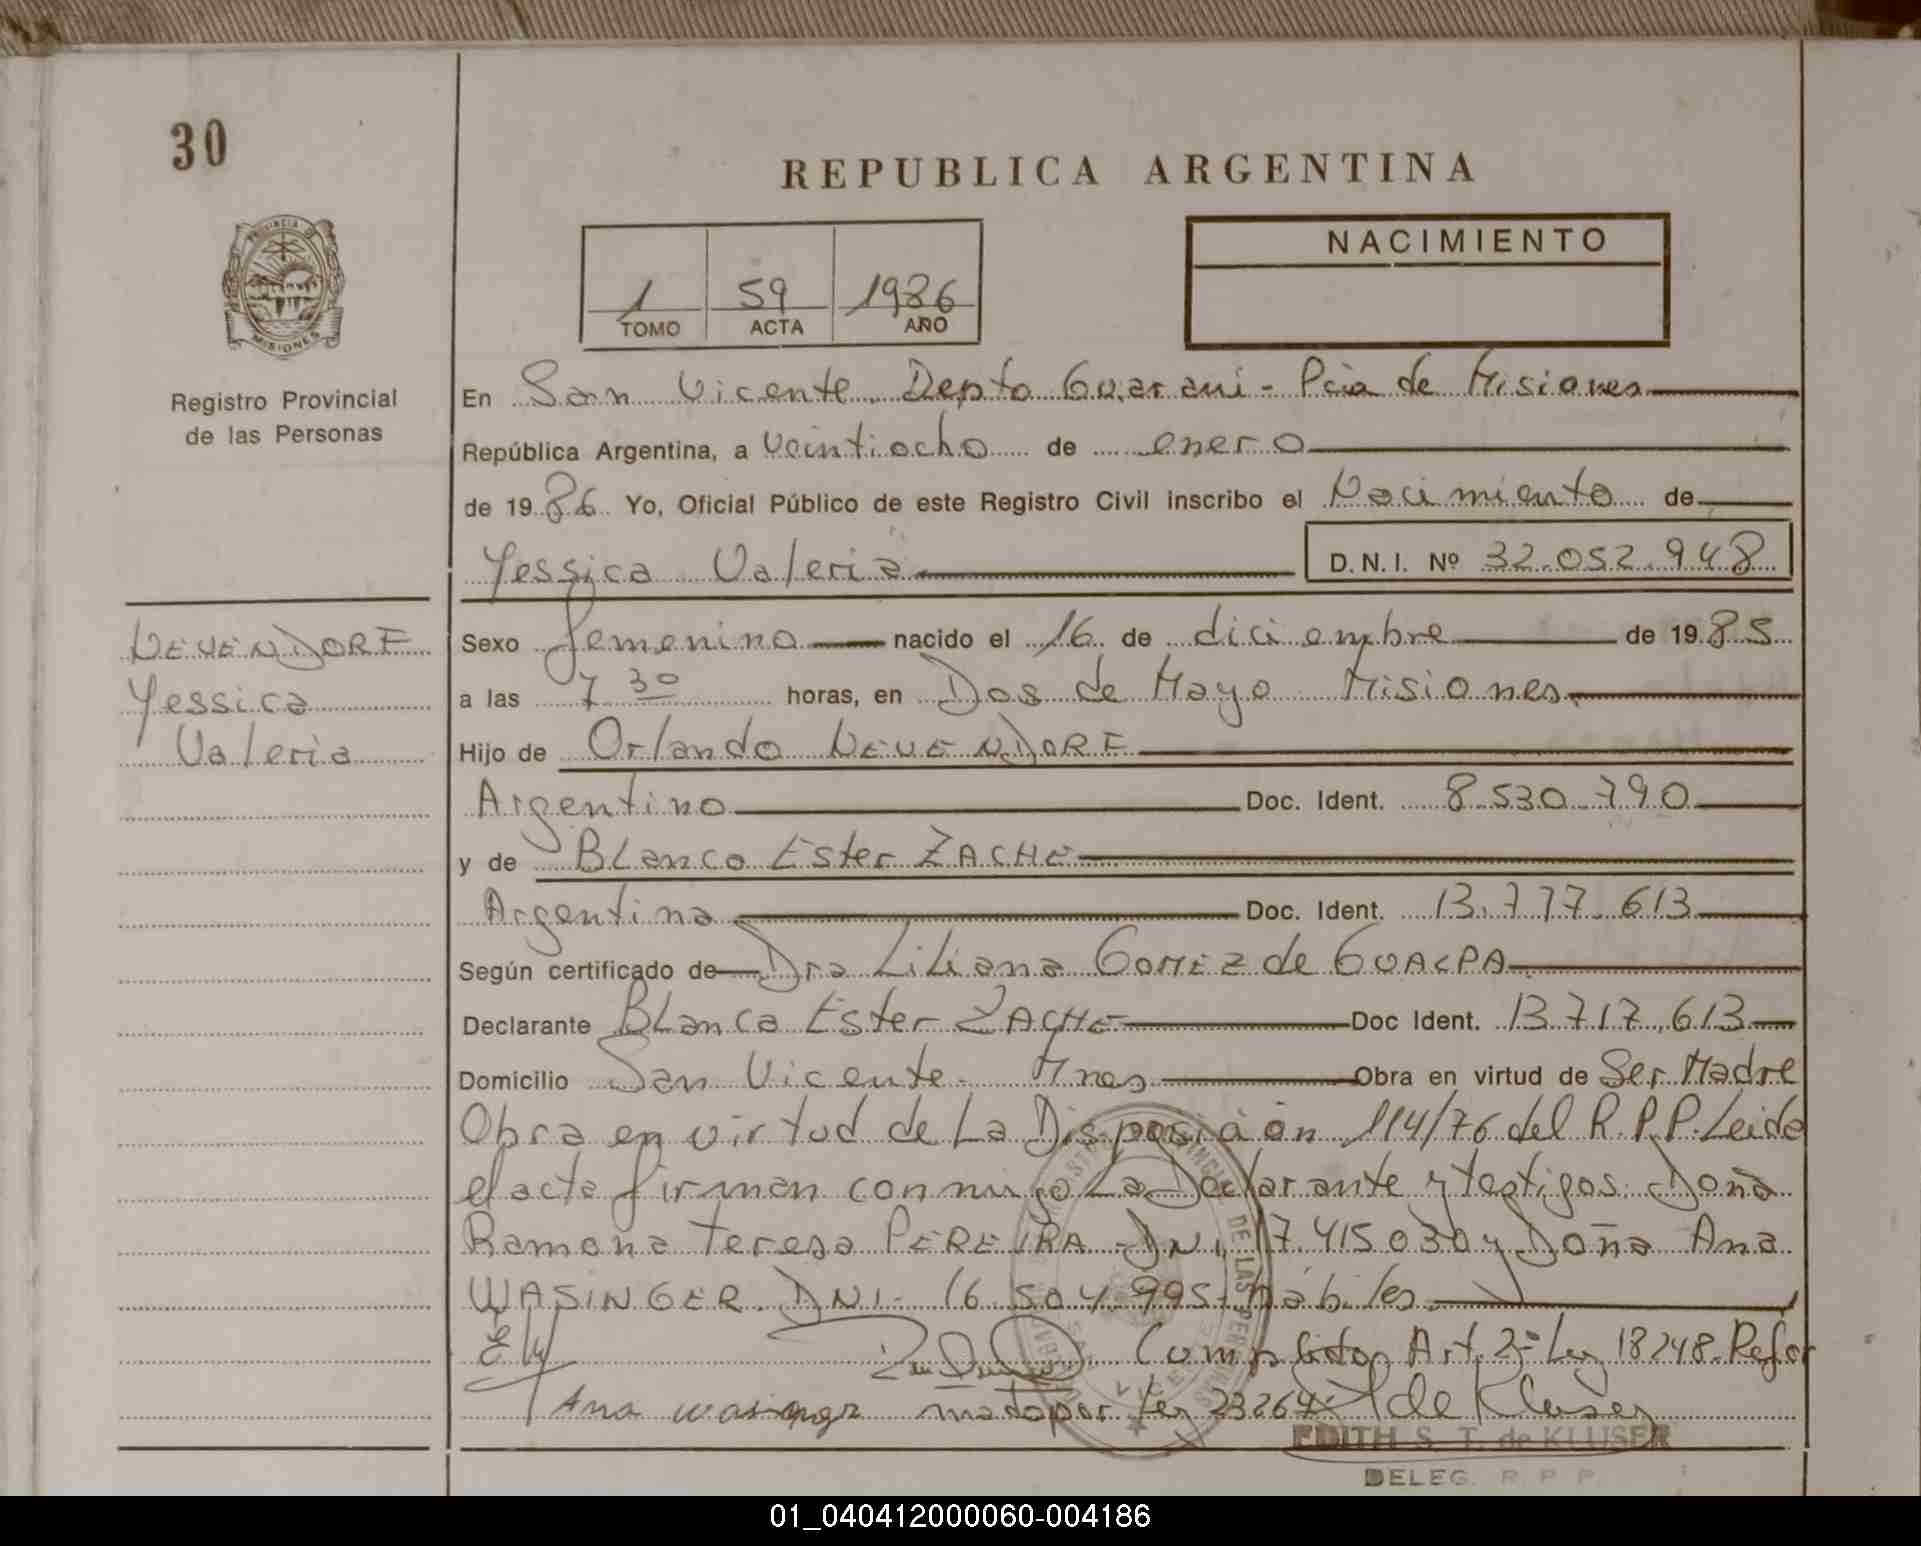 30
REPUBLICA ARGENTINA
PROVINCIA DE MISIONES
1 59 1986
TOMO ACTA AÑO
NACIMIENTO
Registro Provincial
de las Personas
En San Vicente. Depto Guarani - Pcia de Misiones
República Argentina, a veintiocho de enero
de 1986 Yo, Oficial Público de este Registro Civil inscribo el Nacimiento de
Yessica Valeria D.N.I. Nº 32.052.948
NEUENDORF
Yessica
Valeria
Sexo femenino nacido el 16 de diciembre de 1985
a las 7 30 horas, en Dos de Mayo Misiones
Hijo de Orlando NEUENDORF
Argentino Doc. Ident. 8.530.790
y de Blanca Ester ZACHE
Argentina Doc. Ident. 13.777.613
Según certificado de Dra Liliana GOMEZ de
Declarante Blanca Ester ZACHE Doc Ident. 13.717.613
Domicilio San Vicente - Mnes Obra en virtud de Ser Madre
Obra en virtud de La Disposición 114/76 del R.P.P. Leida
el acta firman conmigo La Declarante y testigos Doña
Ramona Teresa PEREIRA - DNI 17.415030 y Doña Ana
WASINGER. DNI - 16.504.995 - hábiles.
Art. 2º Ley 18248. Refor
Ana wasinger mado por Ley 23264 de Kluser
EDITH S. T. de KLUSER
DELEG. R. P. P.
01_040412000060-004186